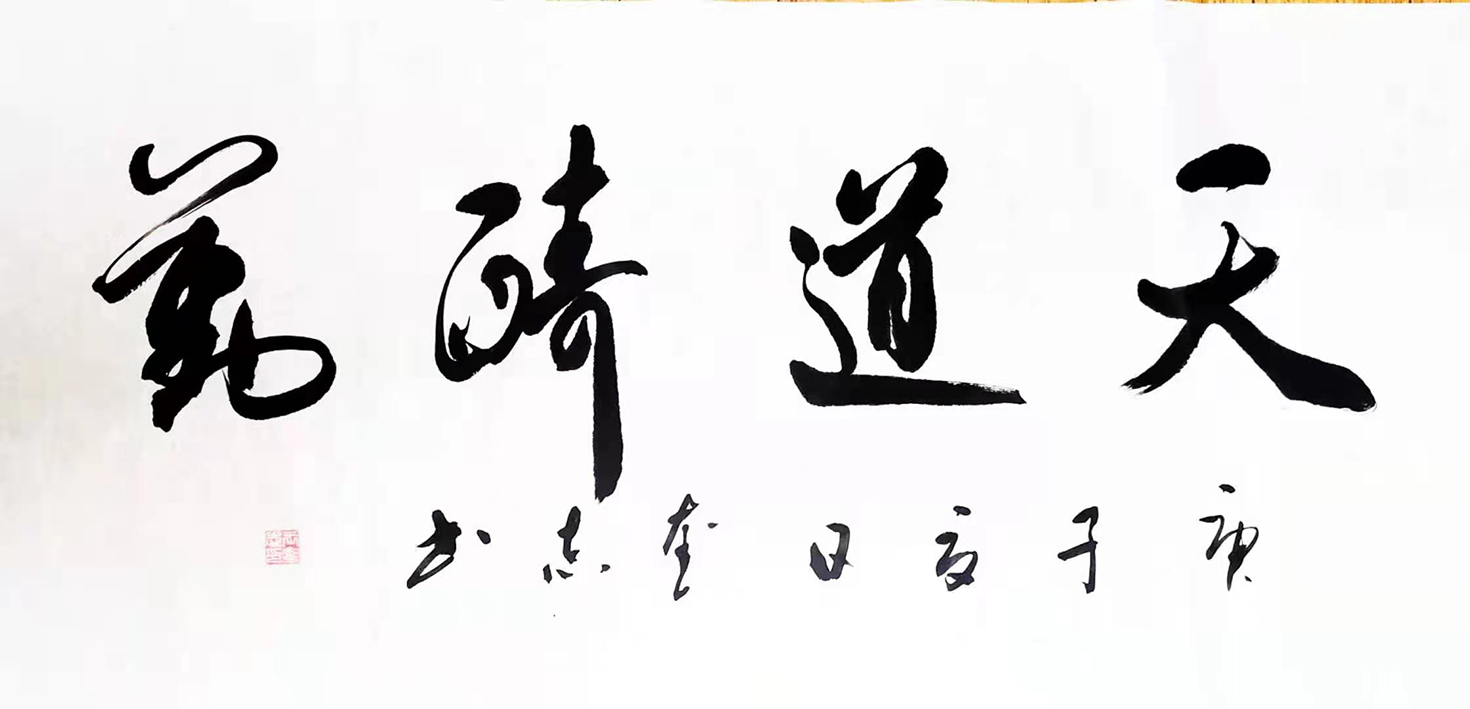 天道酬勤
庚子夏日奎志书